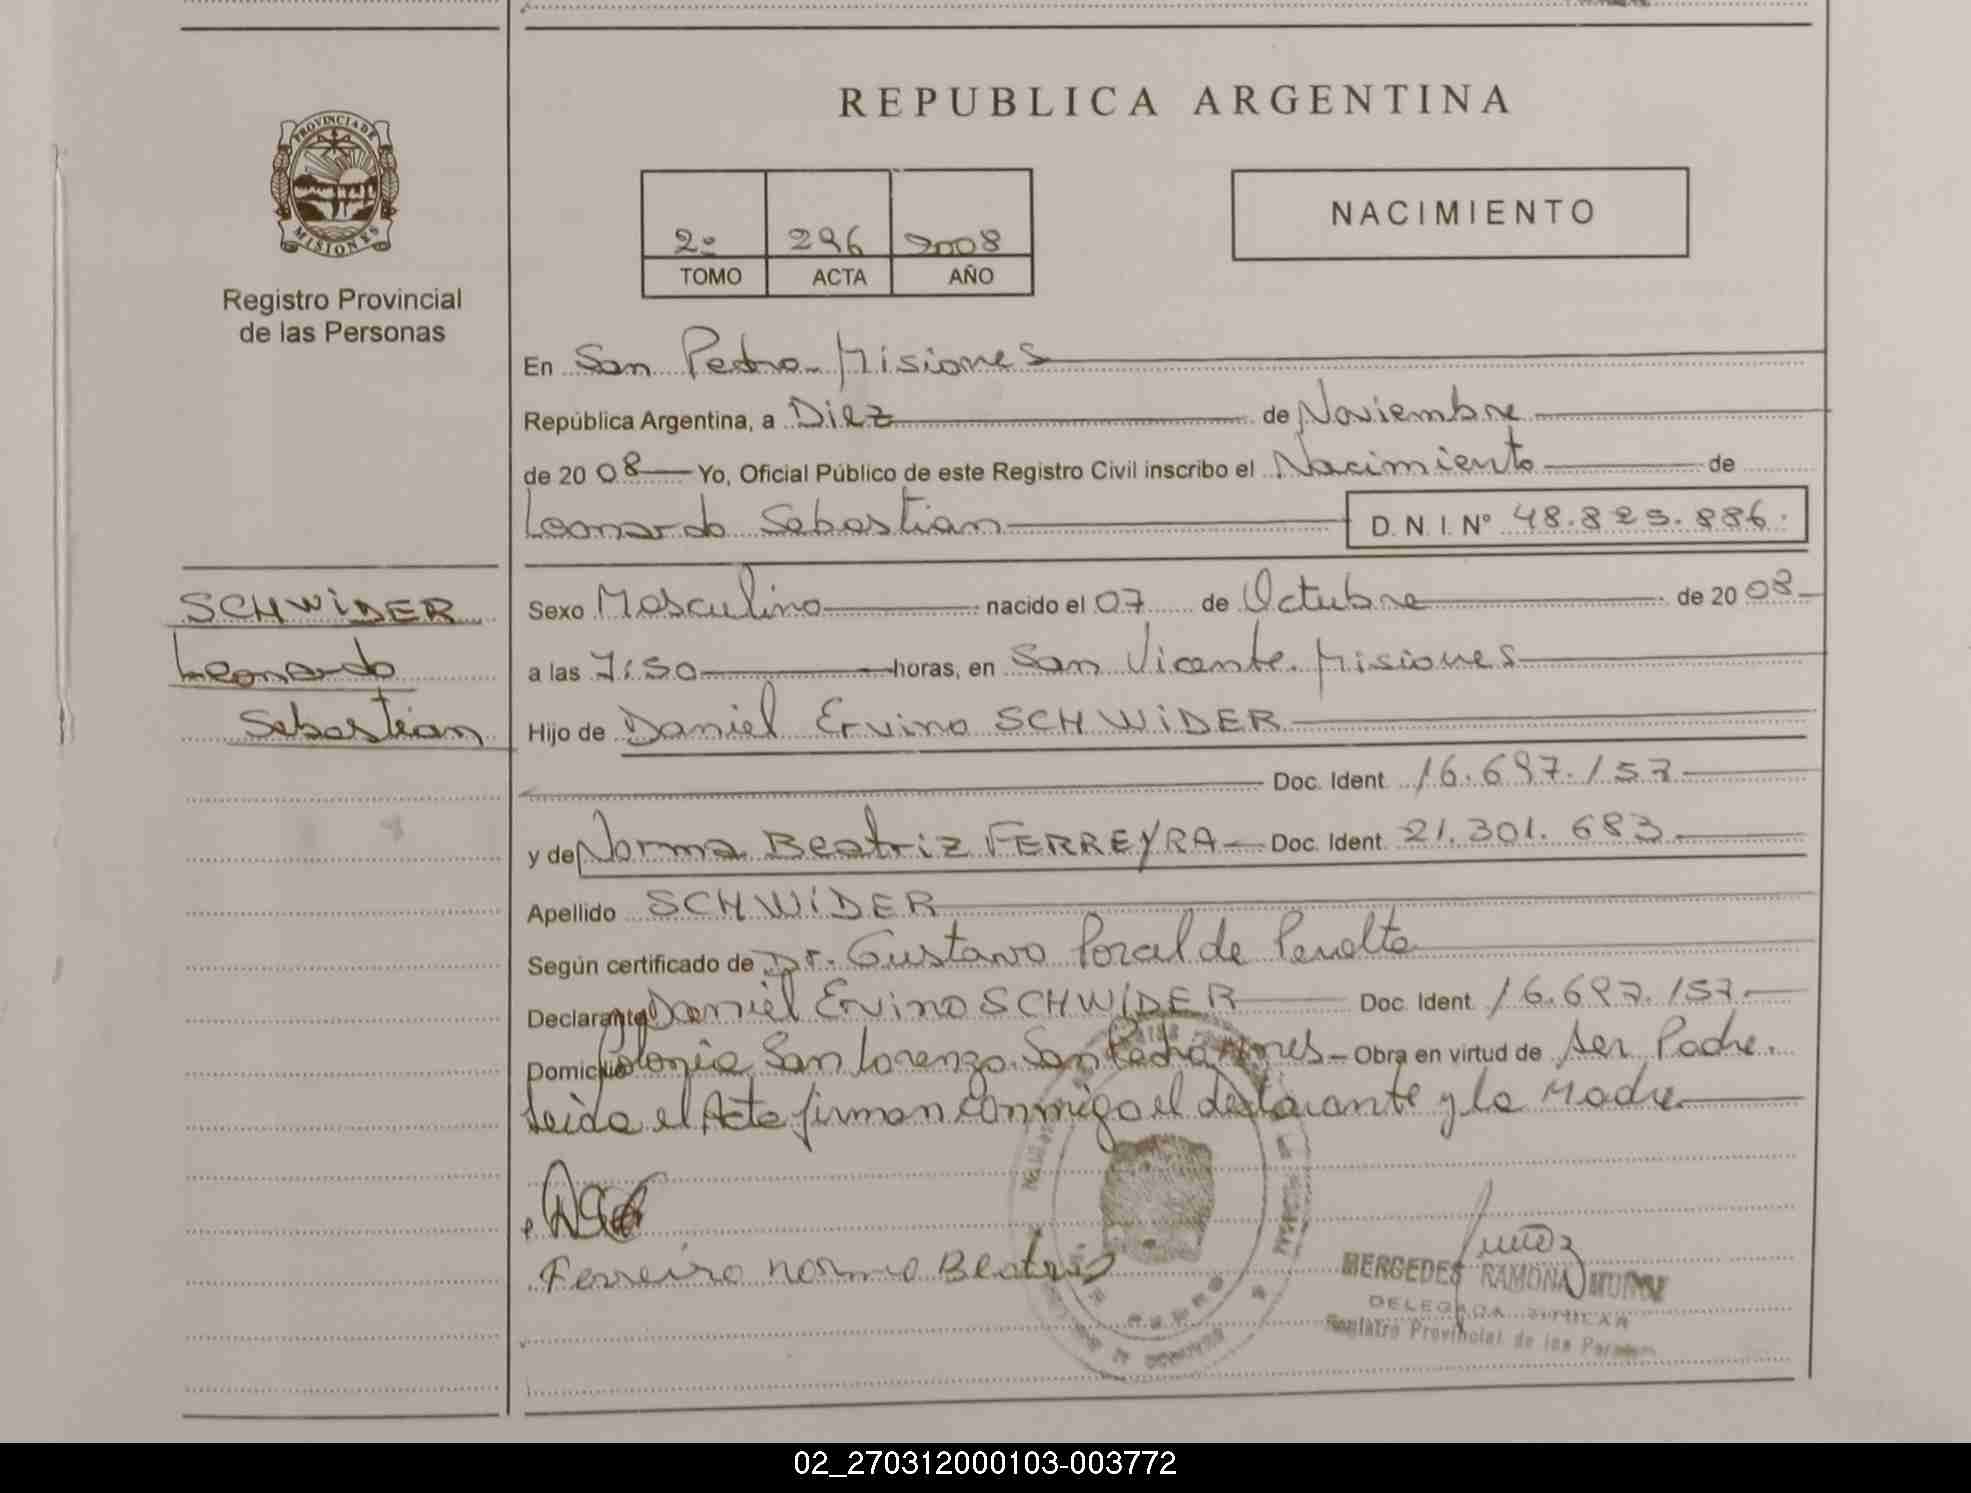 REPUBLICA ARGENTINA
PROVINCIA DE
MISIONES
Registro Provincial
de las Personas
2º 296 2008
TOMO ACTA AÑO
NACIMIENTO
En San Pedro - Misiones
República Argentina, a Diez de Noviembre
de 20 08 Yo, Oficial Público de este Registro Civil inscribo el Nacimiento de
Leonardo Sebastian D. N. I. Nº 48.825.886.
SCHWIDER
Leonardo
Sebastian
Sexo Masculino nacido el 07 de Octubre de 20 08
a las 7:50 horas, en San Vicente. Misiones
Hijo de Daniel Ervino SCHWIDER
Doc. Ident. 16.697.157
y de Norma Beatriz FERREYRA Doc. Ident. 21.301.683
Apellido SCHWIDER
Según certificado de Dr. Gustavo de Peralta
Declarante Daniel Ervino SCHWIDER Doc. Ident. 16.697.157
Domicilio Colonia San Lorenzo. San Pedro Mnes - Obra en virtud de ser Padre.
Leida el Acta firman conmigo el declarante y la Madre
Ferreira norma Beatris
MERGEDES RAMONA MUÑOZ
DELEGADA TITULAR
Registro Provincial de las Personas
02_270312000103-003772